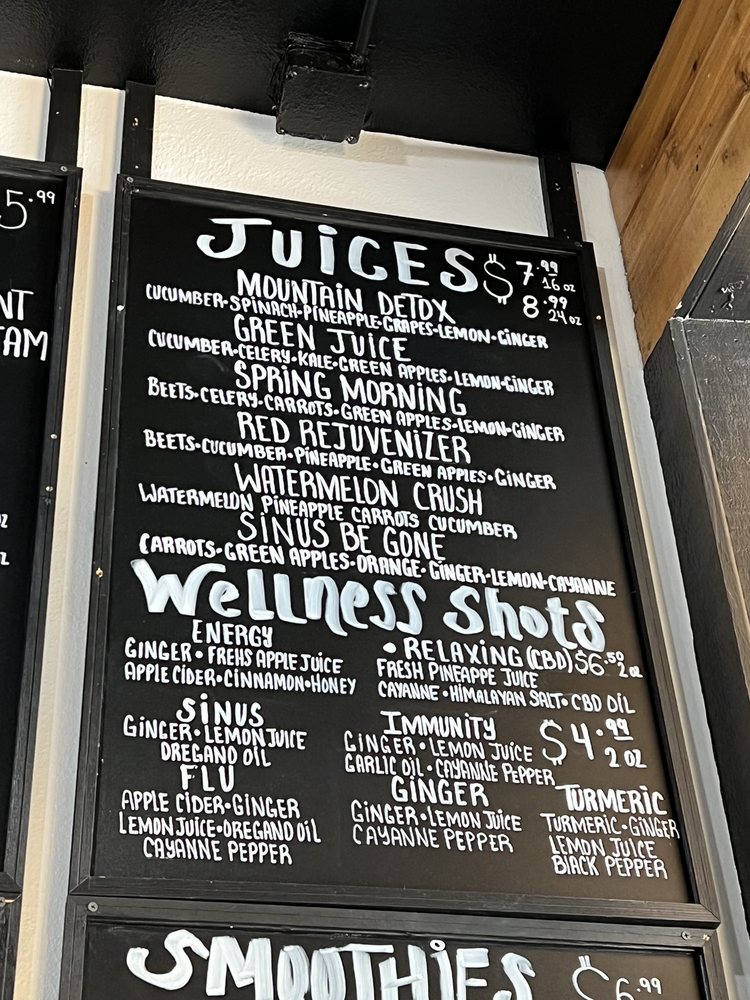 5.99
NT
TAM
JUICES $7.99 16 oz
8.99 24 oz
MOUNTAIN DETOX
CUCUMBER-SPINACH-PINEAPPLE-GRAPES-LEMON-GINGER
GREEN JUICE
CUCUMBER•CELERY•KALE•GREEN APPLES•LEMON•GINGER
SPRING MORNING
BEETS•CELERY•CARROTS•GREEN APPLES•LEMON•GINGER
RED REJUVENIZER
BEETS•CUCUMBER•PINEAPPLE•GREEN APPLES•GINGER
WATERMELON CRUSH
WATERMELON PINEAPPLE CARROTS CUCUMBER
SINUS BE GONE
CARROTS•GREEN APPLES•ORANGE•GINGER•LEMON•CAYANNE
Wellness Shots
ENERGY
GINGER•FREHS APPLE JUICE
APPLE CIDER•CINNAMON•HONEY
• RELAXING (CBD) $6.50 2 oz
FRESH PINEAPPE JUICE
CAYANNE•HIMALAYAN SALT•CBD OIL
SINUS
GINGER•LEMON JUICE
OREGANO OIL
IMMUNITY $4.99 2 OZ
GINGER•LEMON JUICE
GARLIC OIL•CAYANNE PEPPER
FLU
APPLE CIDER•GINGER
LEMON JUICE•OREGANO OIL
CAYANNE PEPPER
GINGER
GINGER•LEMON JUICE
CAYANNE PEPPER
TURMERIC
TURMERIC•GINGER
LEMON JUICE
BLACK PEPPER
SMOOTHIES $6.99